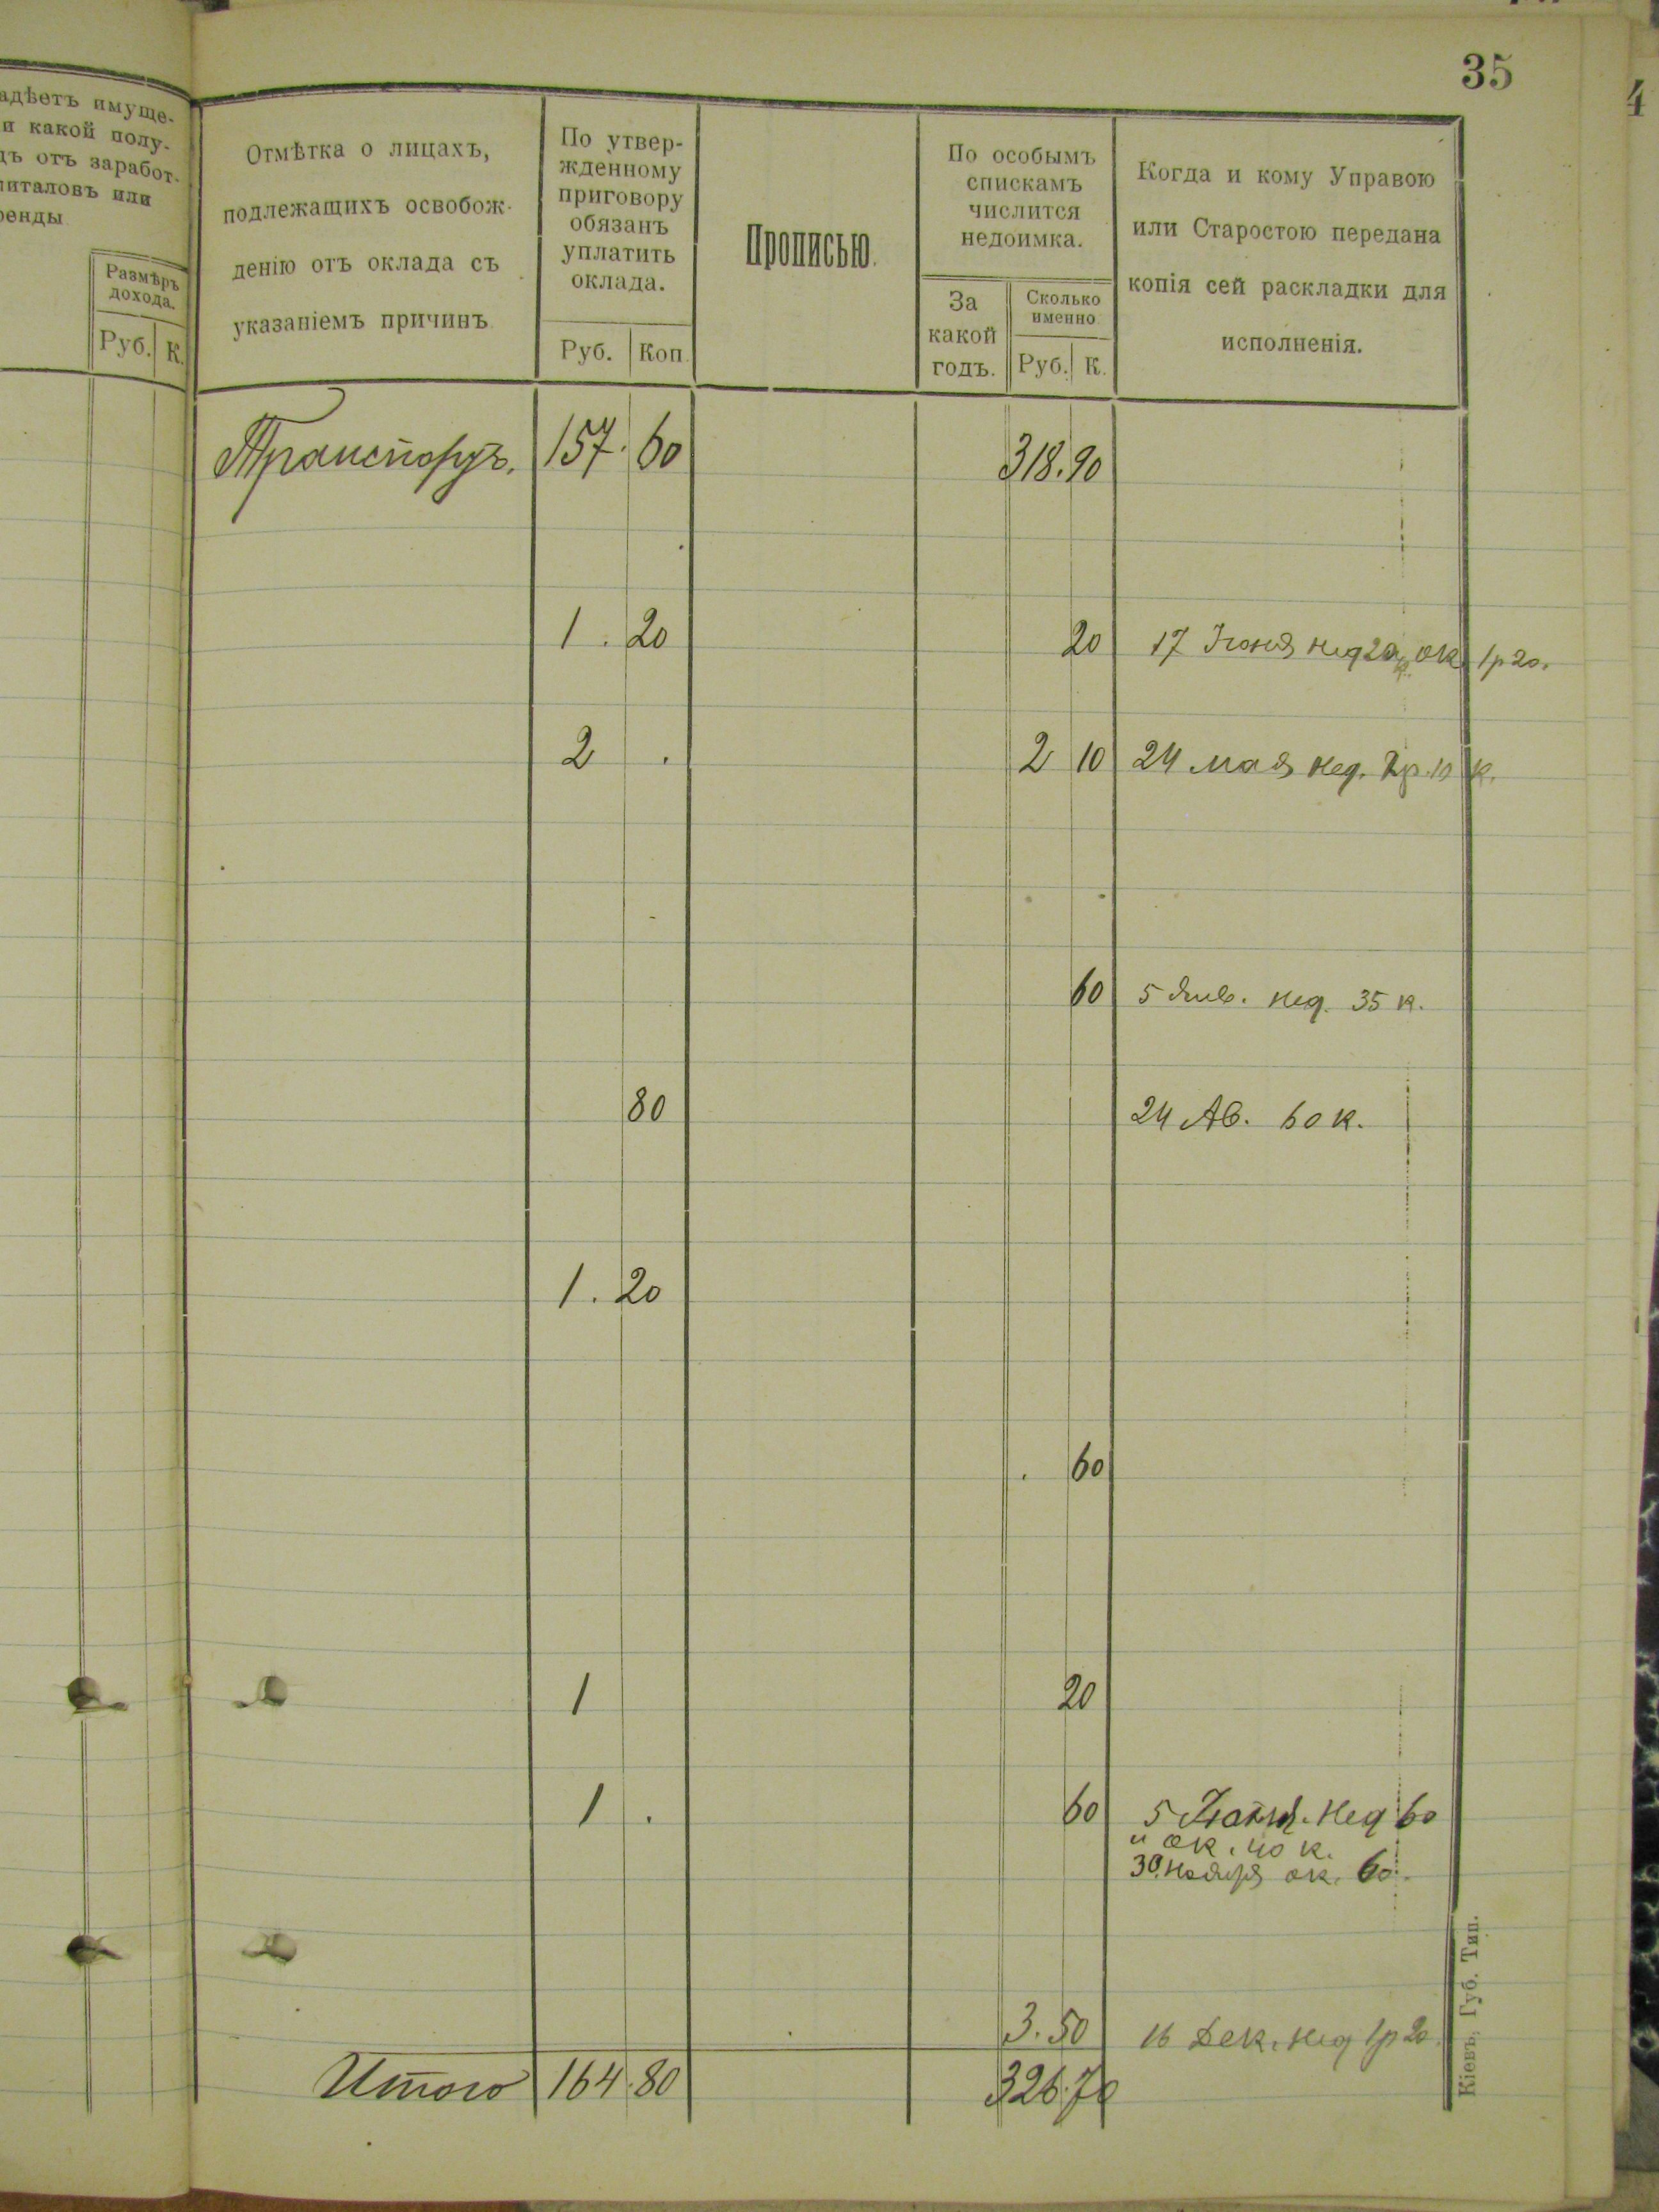 35
4
адѣетъ имуще-
и какой полу-
дъ отъ заработ-
питаловъ или
ренды
Размѣръ
дохода.
Руб. К.
Отмѣтка о лицахъ,
подлежащихъ освобож-
денію отъ оклада съ
указаніемъ причинъ
По утвер-
жденному
приговору
обязанъ
уплатить
оклада.
Руб. Коп.
Прописью.
По особымъ
спискамъ
числится
недоимка.
За
какой
годъ.
Сколько
именно
Руб. К.
Когда и кому Управою
или Старостою передана
копія сей раскладки для
исполненія.
Транспортъ. 157. 60 318. 90
1. 20 20 17 Іюня нед 20 к. ок. 1р 20.
2 . 2 10 24 мая нед. 2р. 10 к.
60 5 Янв. нед. 35 к.
80 24 Ав. 60 к.
1. 20
. 60
1 20
1 . 60 5 Іюня. нед 60
и ок. 40 к.
30 Ноября ок. 60.
3. 50 16 Дек. нед 1р 20.
Итого 164. 80 326. 70
Кіевъ, Губ. Тип.